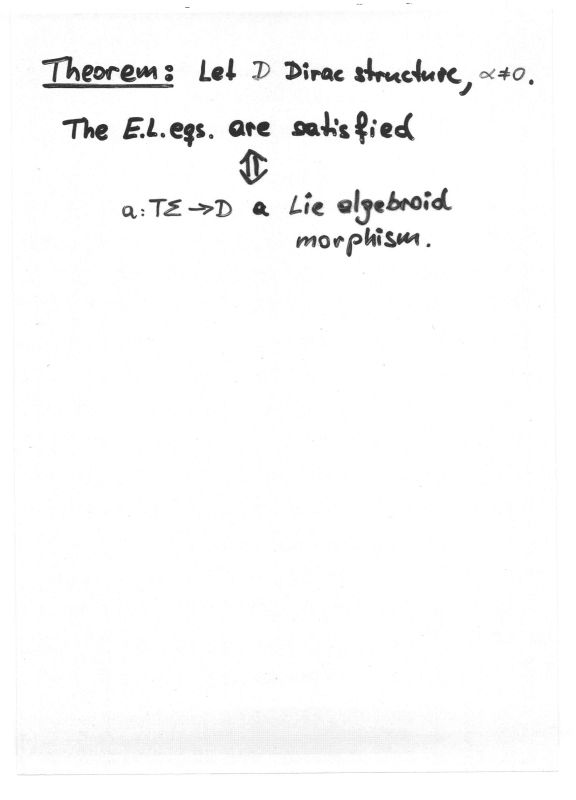 Theorem: Let D Dirac structure, α≠0.
The E.L. eqs. are satisfied
⇕
a: TΣ → D a Lie algebroid
morphism.